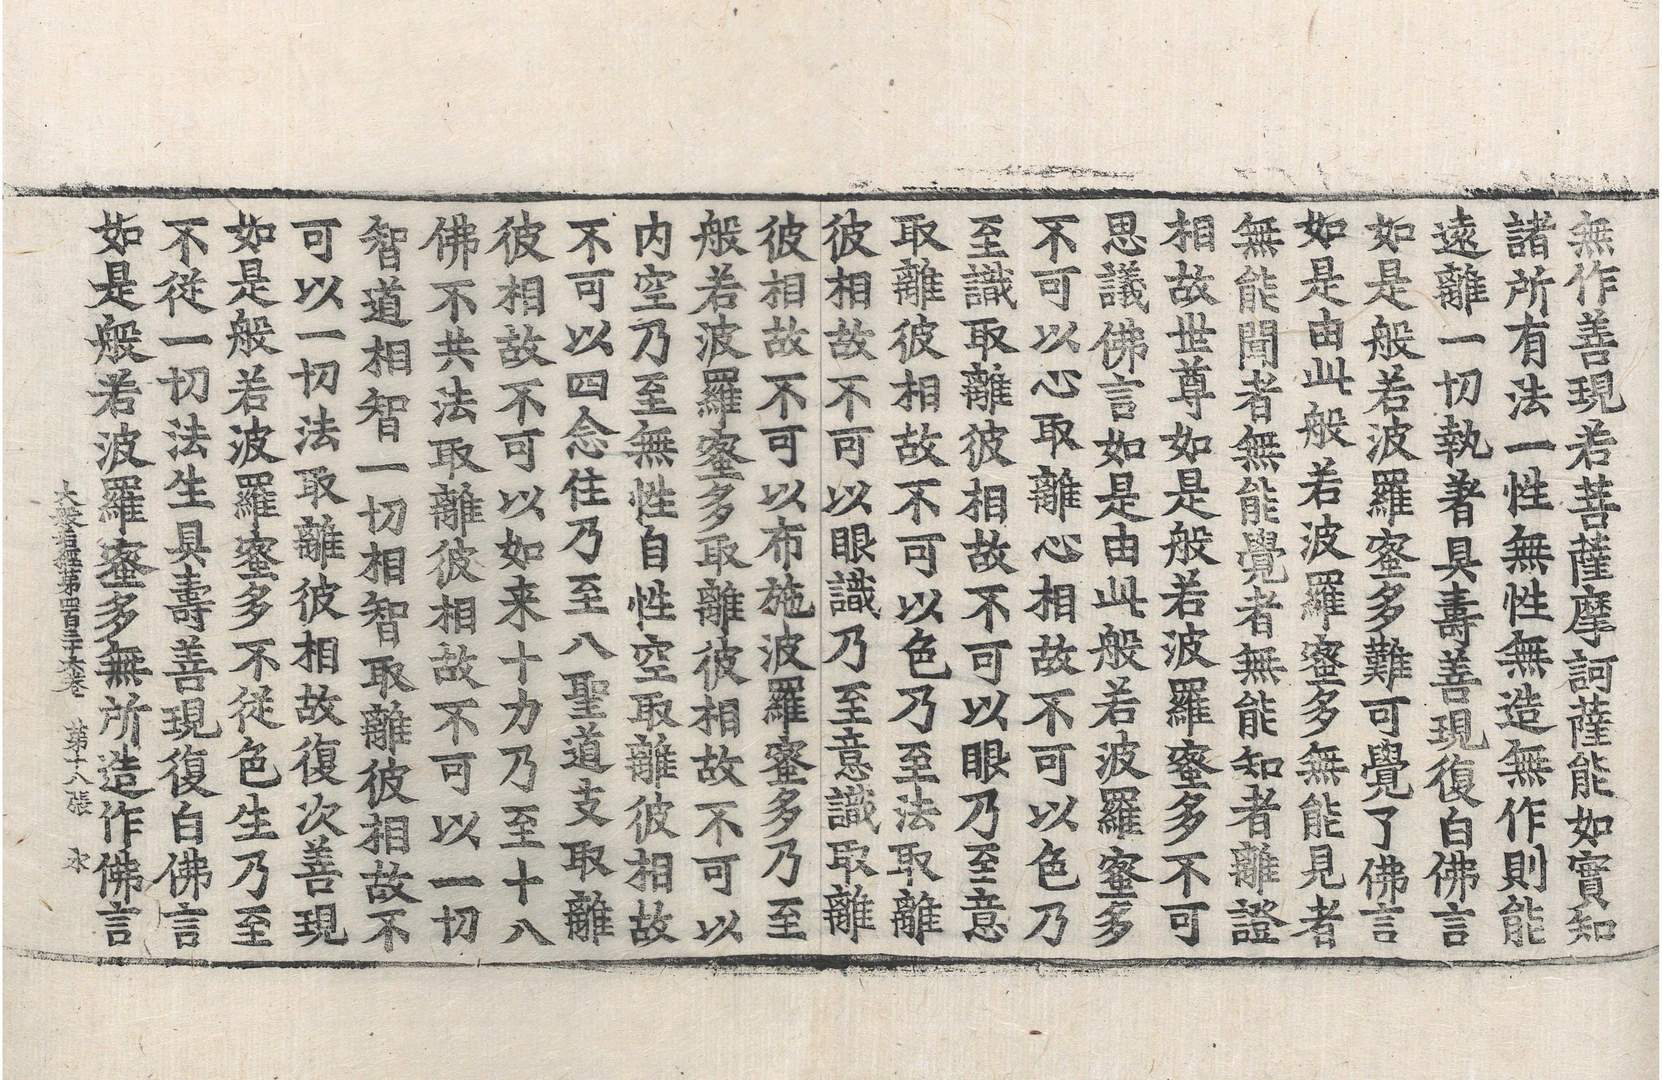 無作善現若菩薩摩訶薩能如實知
諸所有法一性無性無造無作則能
遠離一切執著具壽善現復白佛言
如是般若波羅蜜多難可覺了佛言
如是由此般若波羅蜜多無能見者
無能聞者無能覺者無能知者離證
相故世尊如是般若波羅蜜多不可
思議佛言如是由此般若波羅蜜多
不可以心取離心相故不可以色乃
至識取離彼相故不可以眼乃至意
取離彼相故不可以色乃至法取離
彼相故不可以眼識乃至意識取離
彼相故不可以布施波羅蜜多乃至
般若波羅蜜多取離彼相故不可以
内空乃至無性自性空取離彼相故
不可以四念住乃至八聖道支取離
彼相故不可以如来十力乃至十八
佛不共法取離彼相故不可以一切
智道相智一切相智取離彼相故不
可以一切法取離彼相故復次善現
如是般若波羅蜜多不従色生乃至
不従一切法生具壽善現復白佛言
如是般若波羅蜜多無所造作佛言
大般若經第四百三十六卷 第十八張 氷